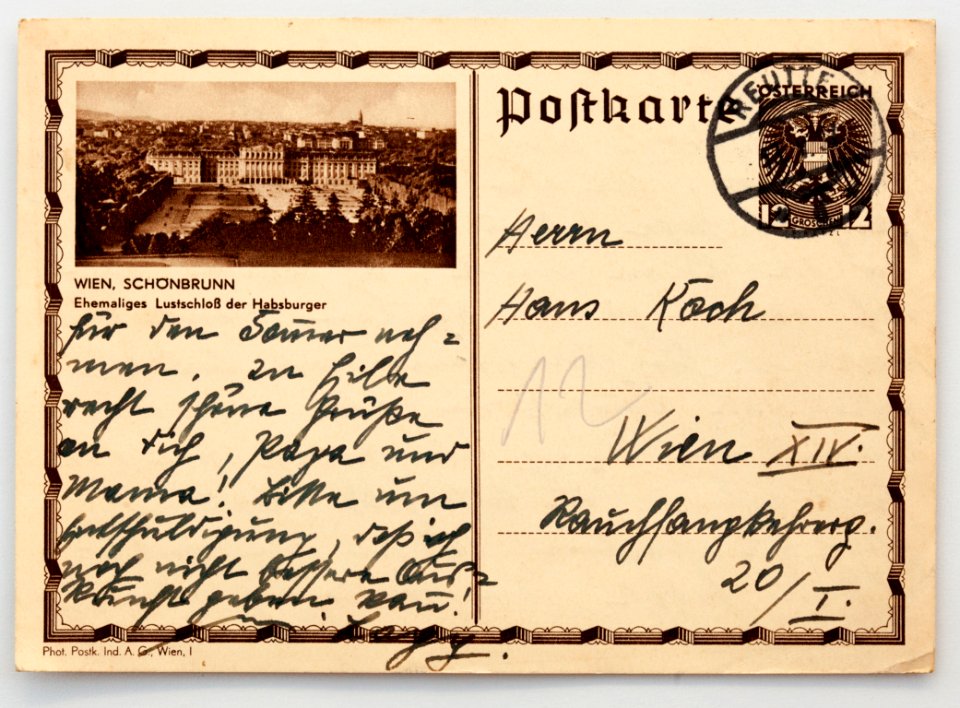 WIEN, SCHÖNBRUNN
Ehemaliges Lustschloß der Habsburger
für den Sommer neh=
men. In Eile
recht schöne Grüße
an Dich, Papa und
Mama! Bitte um
Entschuldigung, daß ich
noch nicht bessere Aus=
kunft geben kann!
Phot. Postk. Ind. A. G., Wien, I
Postkarte
REUTTE
ÖSTERREICH
12 GROSCHEN 12
Herrn
Hans Koch
12
Wien XIV.
Rauchfangkehrerg.
20/I.